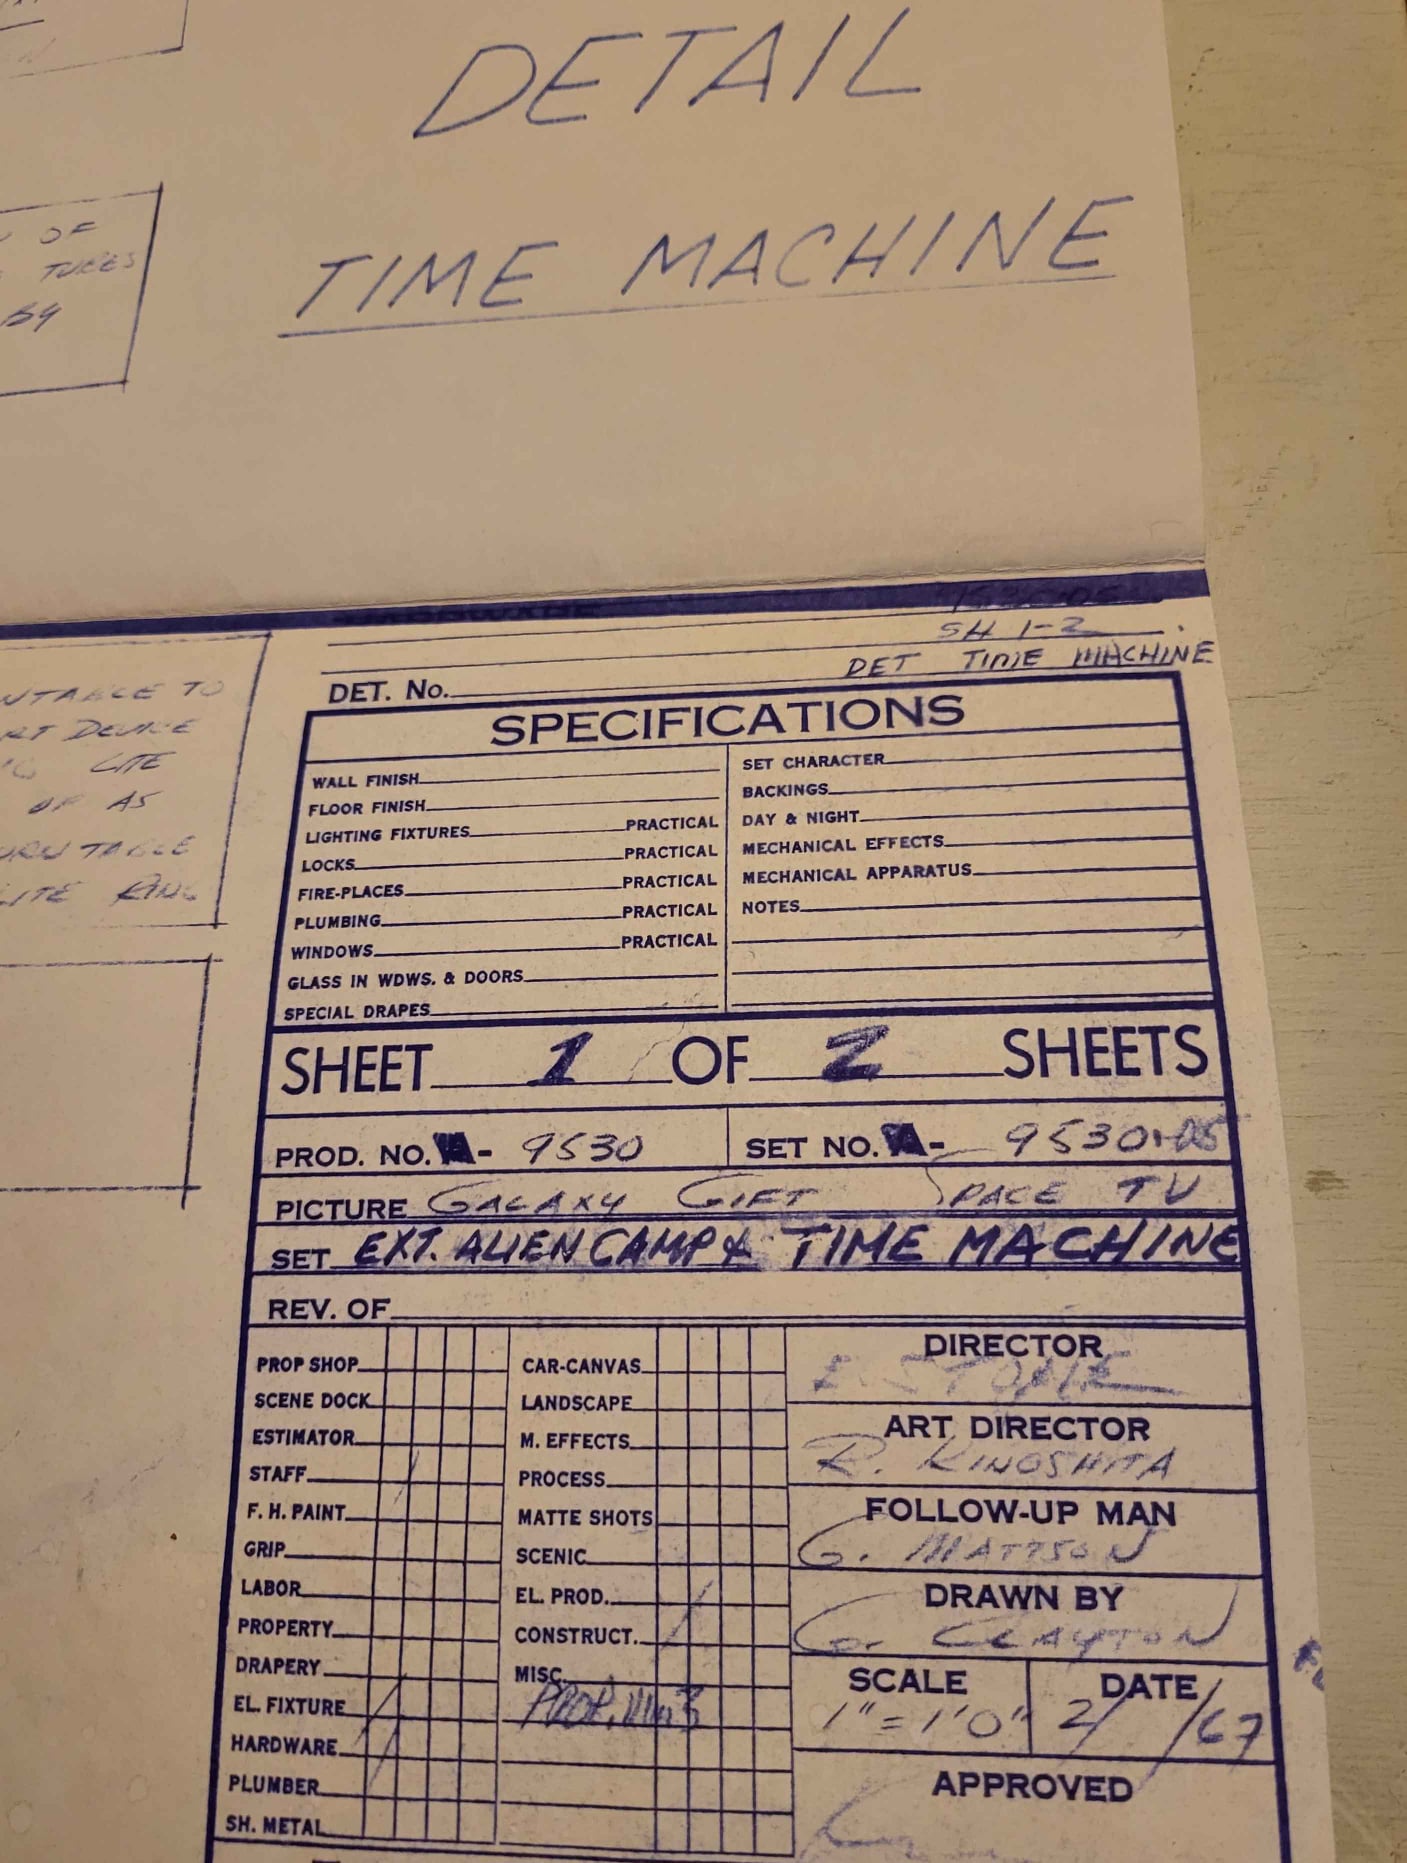 DETAIL
TIME MACHINE
OF
TUBES
BY
SH 1-2
DET TIME MACHINE
TO
DEVICE
LITE
OF AS
TABLE
LITE RING
DET. No.
SPECIFICATIONS
WALL FINISH
FLOOR FINISH
LIGHTING FIXTURES PRACTICAL
LOCKS PRACTICAL
FIRE-PLACES PRACTICAL
PLUMBING PRACTICAL
WINDOWS PRACTICAL
GLASS IN WDWS. & DOORS
SPECIAL DRAPES
SET CHARACTER
BACKINGS
DAY & NIGHT
MECHANICAL EFFECTS
MECHANICAL APPARATUS
NOTES
SHEET 1 OF 2 SHEETS
PROD. NO. A- 9530
SET NO. A- 9530-05
PICTURE GALAXY GIFT SPACE TV
SET EXT. ALIEN CAMP & TIME MACHINE
REV. OF
PROP SHOP
SCENE DOCK
ESTIMATOR
STAFF
F. H. PAINT
GRIP
LABOR
PROPERTY
DRAPERY
EL. FIXTURE
HARDWARE
PLUMBER
SH. METAL
CAR-CANVAS
LANDSCAPE
M. EFFECTS
PROCESS
MATTE SHOTS
SCENIC
EL. PROD.
CONSTRUCT.
MISC.
PROP.
DIRECTOR
E. STONE
ART DIRECTOR
R. KINOSHITA
FOLLOW-UP MAN
G. MATTSON
DRAWN BY
G. CLAYTON
SCALE
1" = 1'0"
DATE
2/ /67
APPROVED